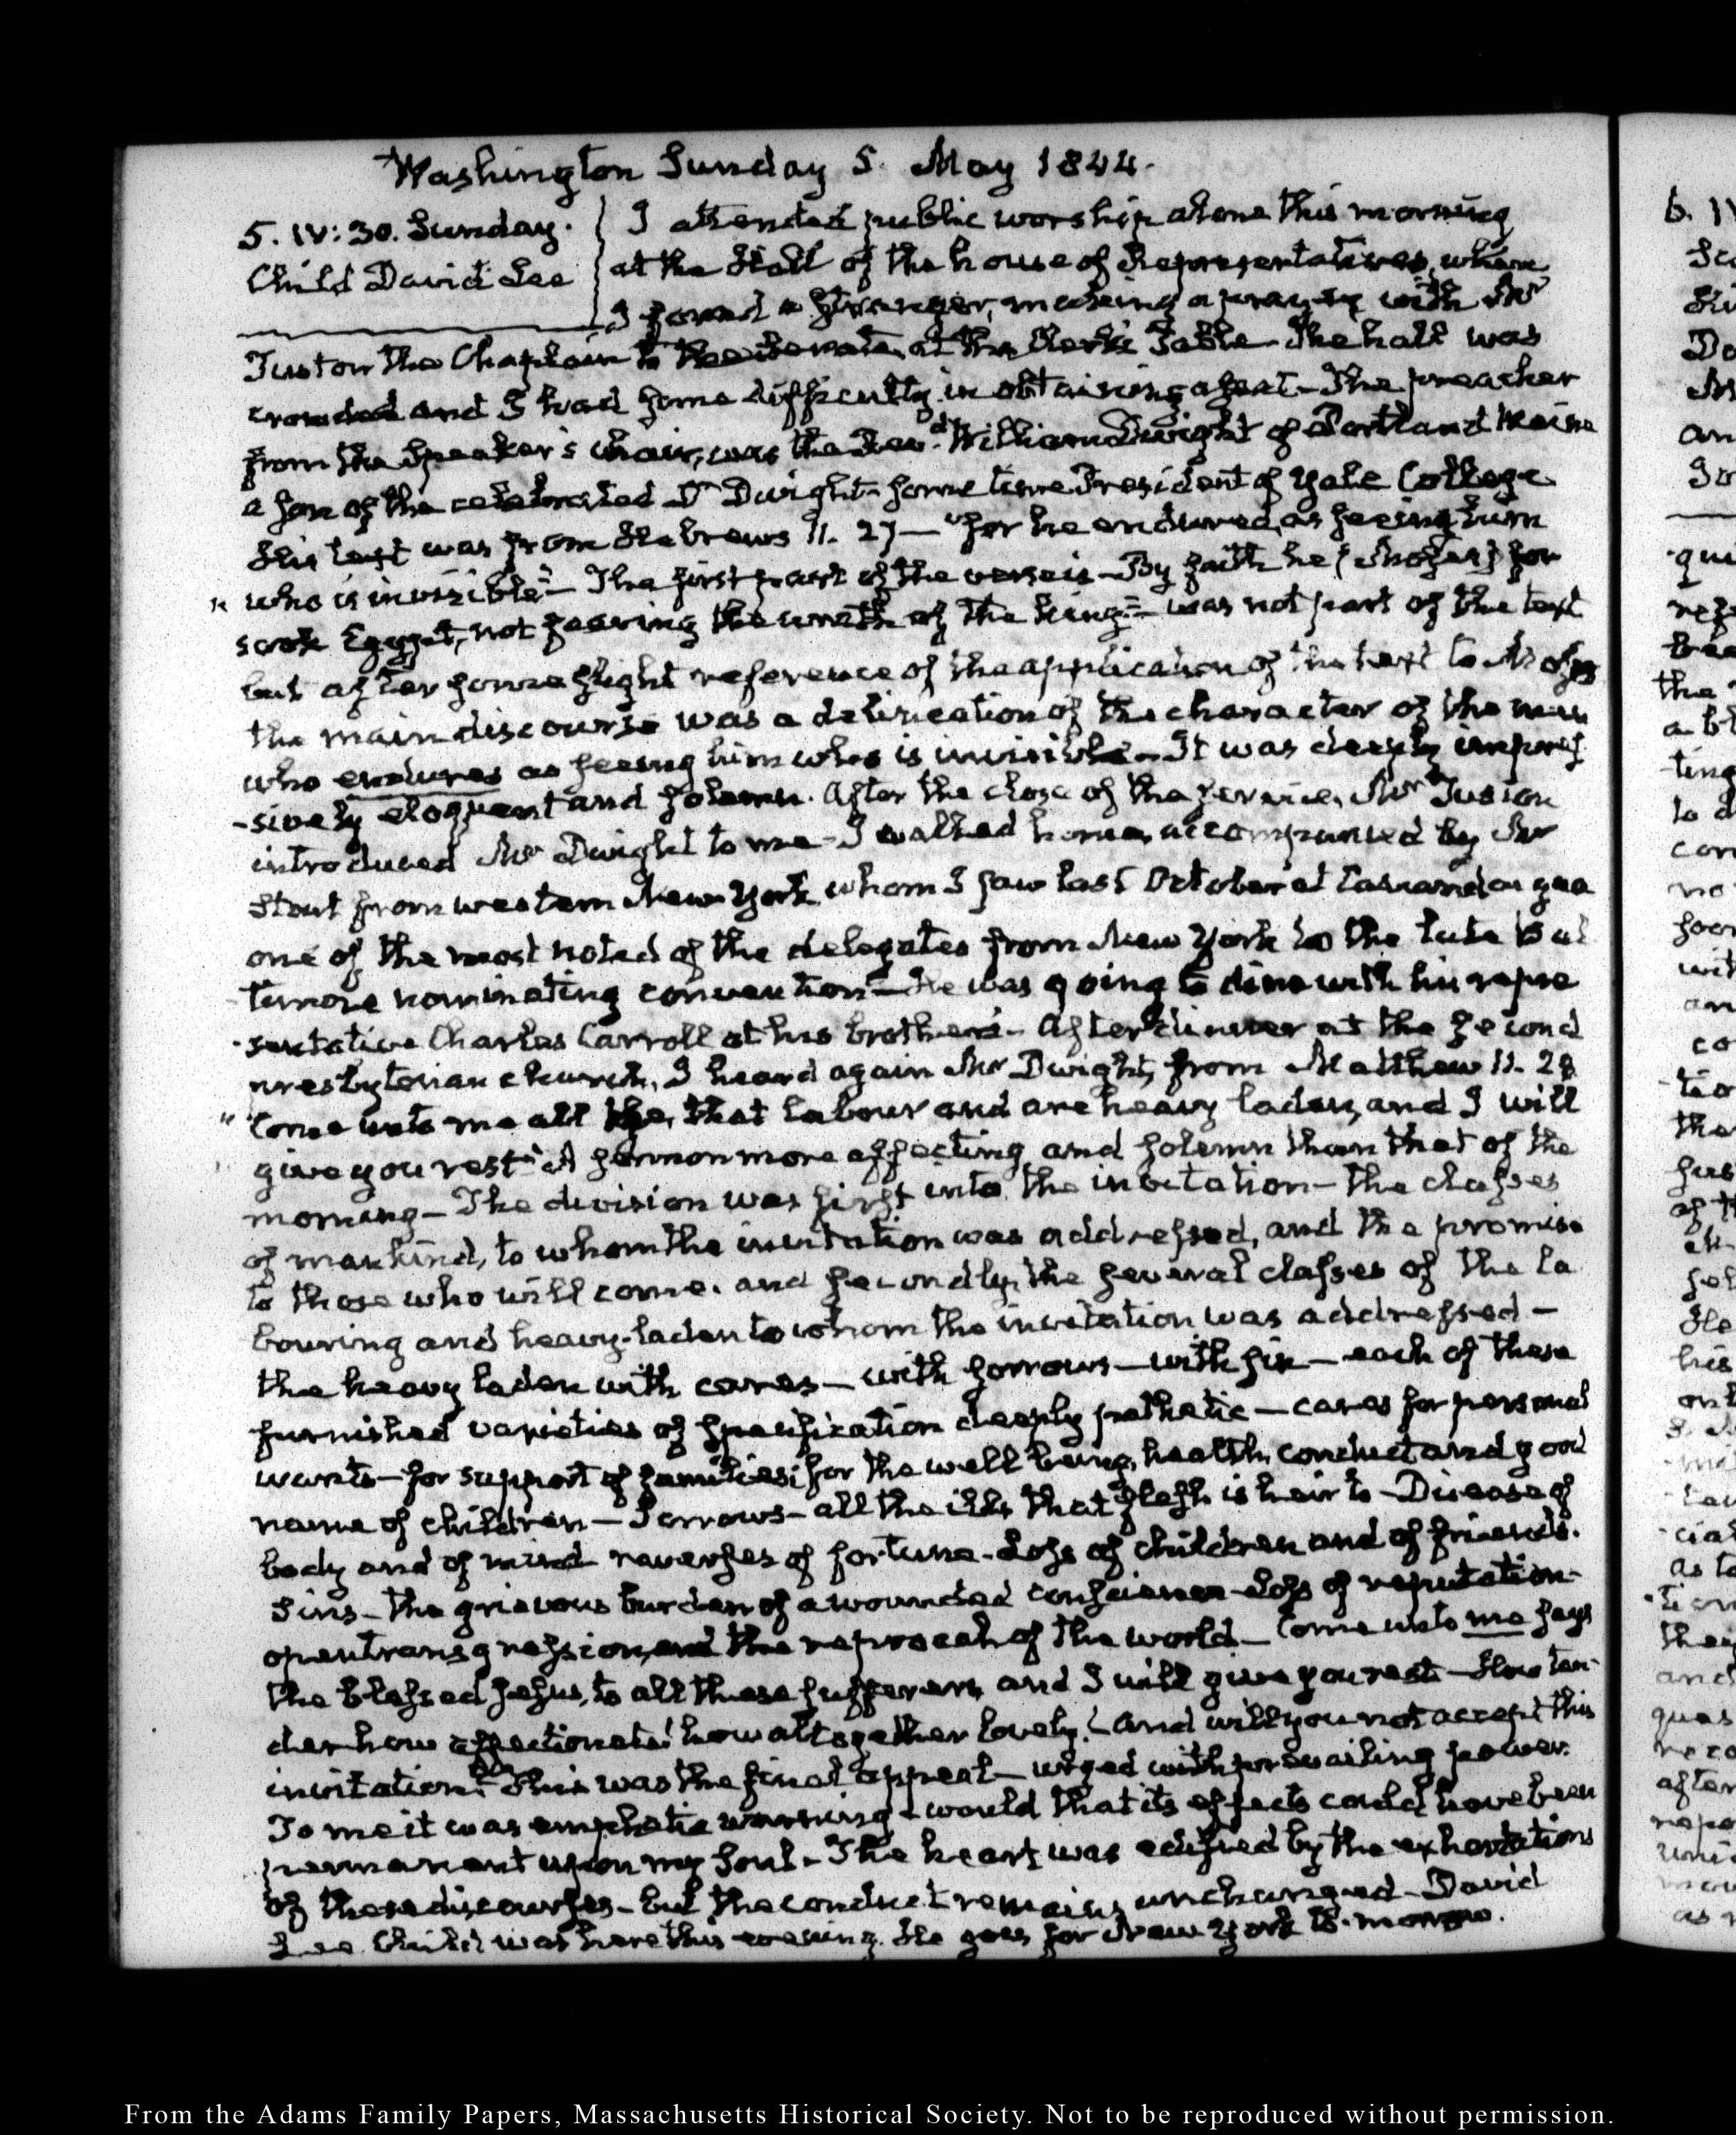 Washington Sunday 5. May 1844.
5. IV:30. Sunday.
Child David Lee
I attended public worship alone this morning
at the Hall of the house of Representatives, where
I found a stranger, making a prayer, with Mr
Tuston the Chaplain to the Senate, at the Clerk's Table. The hall was
crowded and I had some difficulty in obtaining a seat – The preacher
from the Speaker's chair, was the Revd. William Dwight of Portland Maine
a son of the celebrated Dr Dwight some time President of Yale College
His text was from Hebrews 11. 27 — "for he endured, as seeing him
"who is invisible" – The first part of the verse is – By faith he (Moses) for
sook Egypt, not fearing the wrath of the king" – was not part of the text
but after some slight reference of the application of the text to Moses
the main discourse was a delineation of the character of the man
who endures as seeing him who is invisible – It was deeply impres
-sively eloquent and solemn. After the close of the service, Mr Tuston
introduced Mr Dwight to me – I walked home, accompanied by Mr
Stout from western New-York, whom I saw last October at Canandaigua
one of the most noted of the delegates from New York to the late Bal
-timore nominating convention – He was going to dine with his repre
-sentative Charles Carroll at his brother's – After dinner at the second
presbyterian church, I heard again Mr Dwight, from Matthew 11. 28
"Come unto me all ye, that labour and are heavy laden, and I will
give you rest" A sermon more affecting and solemn than that of the
morning – The division was first into the invitation – the classes
of mankind, to whom the invitation was addressed, and the promise
to those who will come. and secondly, the several classes of the la
bouring and heavy-laden to whom the invitation was addressed –
the heavy laden with cares – with sorrows – with sin – each of these
furnished varieties of specification deeply pathetic – cares for personal
wants – for support of families; for the well being, health, conduct and good
name of children – Sorrows – all the ills that flesh is heir to – Disease of
body and of mind reverses of fortune – Loss of children and of friends.
Sins – the grievous burden of a wounded conscience – Loss of reputation –
open transgression, and the reproach of the world – Come unto me says
the blessed Jesus, to all these sufferers, and I will give you rest – How ten-
der how affectionate! how altogether lovely! – and will you not accept this
invitation? This was the final appeal – urged with prevailing power.
To me it was emphatic warning – would that its effects could have been
permanent upon my Soul – The heart was edified by the exhortations
of these discourses – but the conduct remains unchanged – David
Lee Child was here this evening. He goes for New York to-morrow.
From the Adams Family Papers, Massachusetts Historical Society. Not to be reproduced without permission.